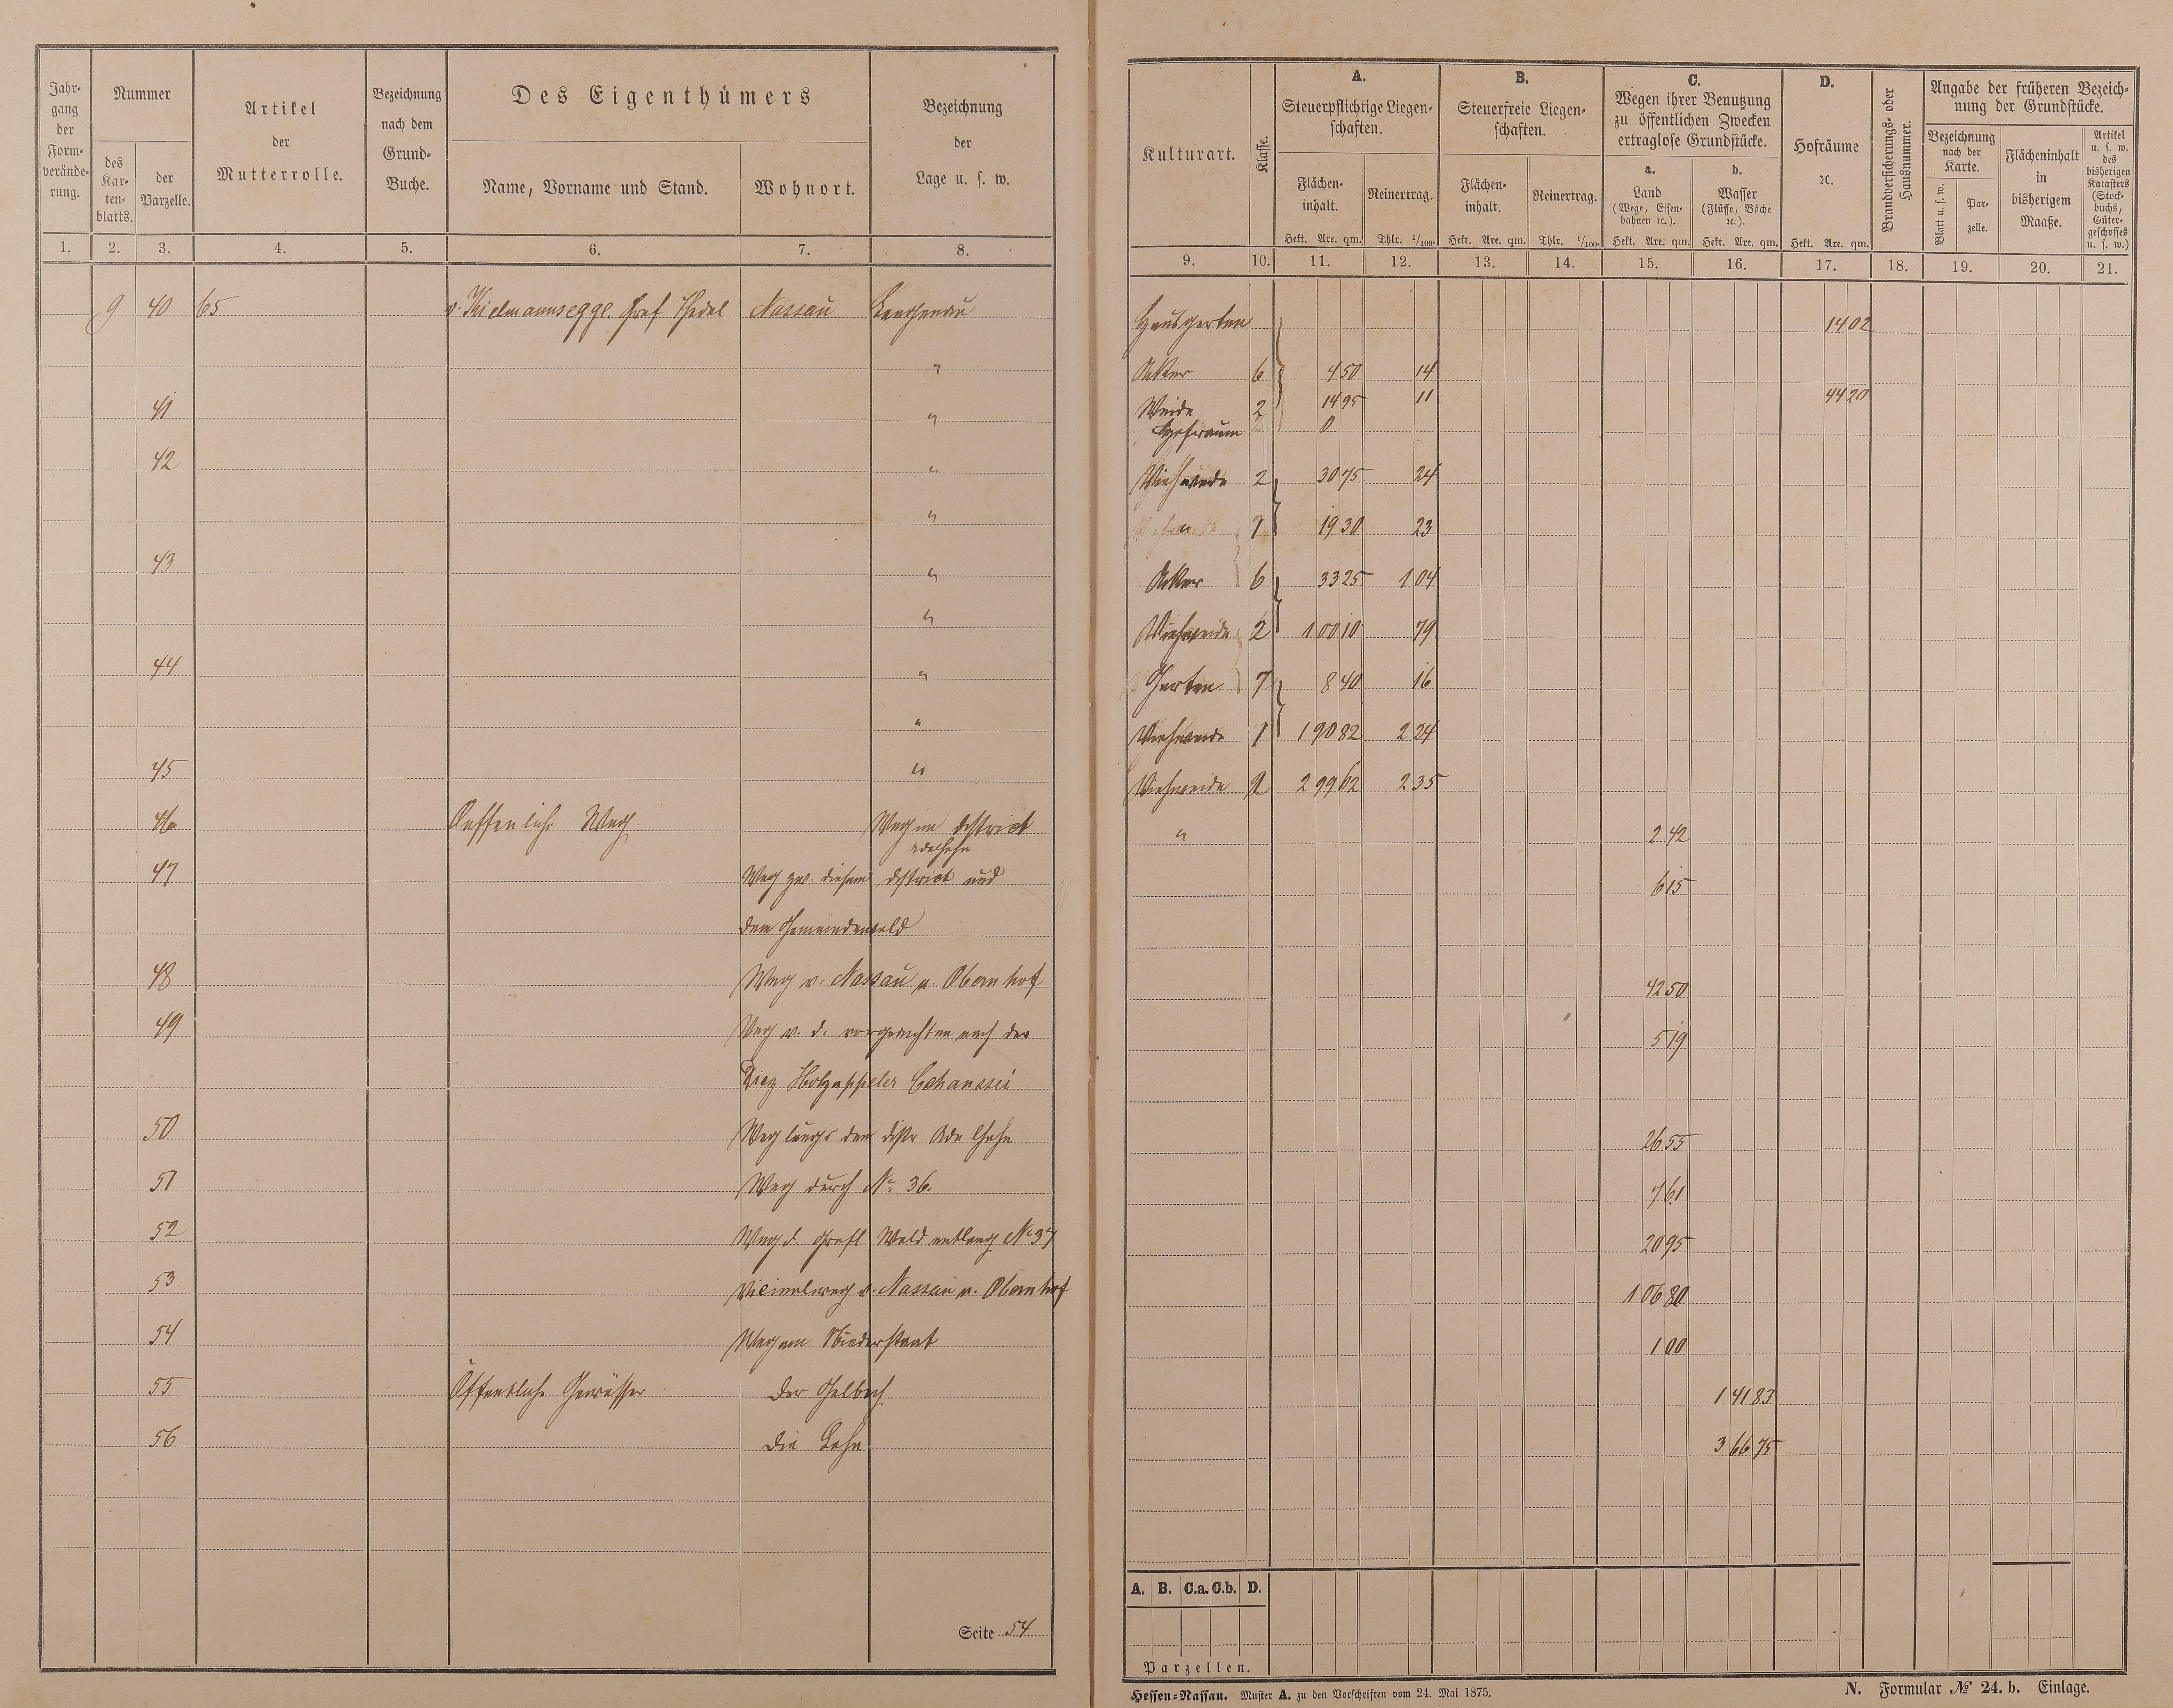 Jahrgang der Formveränderung.
Nummer
des Kartenblatts.
der Parzelle.
Artikel der Mutterrolle.
Bezeichnung nach dem Grund-Buche.
Des Eigenthümers
Name, Vorname und Stand.
Wohnort.
Bezeichnung der Lage u. s. w.
1. 2. 3. 4. 5. 6. 7. 8.
Kulturart.
Klasse.
A.
Steuerpflichtige Liegenschaften.
Flächeninhalt.
Reinertrag.
Hekt. Are. qm. Thlr. 1/100.
B.
Steuerfreie Liegenschaften.
Flächeninhalt.
Reinertrag.
Hekt. Are. qm. Thlr. 1/100.
C.
Wegen ihrer Benutzung zu öffentlichen Zwecken ertraglose Grundstücke.
a.
Land
(Wege, Eisenbahnen ꝛc.).
b.
Wasser
(Flüsse, Bäche ꝛc.).
Hekt. Are. qm. Hekt. Are. qm.
D.
Hofräume ꝛc.
Hekt. Are. qm.
Brandversicherungs- oder Hausnummer.
Angabe der früheren Bezeichnung der Grundstücke.
Bezeichnung nach der Karte.
Blatt u. s. w.
Parzelle.
Flächeninhalt in bisherigem Maaße.
Artikel u. s. w. des bisherigen Katasters (Stockbuchs, Gütergeschosses u. s. w.)
9. 10. 11. 12. 13. 14. 15. 16. 17. 18. 19. 20. 21.
9 40 65 v. Kielmannsegge. Graf Nassau Langenau Hausgarten 14 02
" Acker 6 4 50 14
41 " Weide 2 14 95 11 44 20
Hofraum 0
42 " Viehweide 2 30 75 24
" 1 19 30 23
43 " Acker 6 33 25 1 04
" Viehweide 2 1 00 10 79
44 " Garten 7 8 40 16
" Viehweide 1 1 90 82 2 24
45 " Viehweide 2 2 99 62 2 35
46 Oeffenlich. Weg Weg im district " 2 42
47 Weg zw. diesem district und 6 15
dem Gemeindewald
48 Weg v. Nassau n. Obernhof 42 50
49 Weg v. d. vorgedachten nach der 5 19
Diez Holzappeler Chaussei
50 Weg längs dem distr 26 55
51 Weg durch No. 36. 7 61
52 Weg d. Grafl Wald entlang No 37 20 95
53 Vicinalweg v. Nassau n. Obernhof 1 06 80
54 Weg am 1 00
55 Öffentliche Gewässer Der Gelbach 1 41 83
56 Die Lahn 3 66 75
Seite 54
A. B. C.a. C.b. D.
Parzellen.
Hessen-Nassau. Muster A. zu den Vorschriften vom 24. Mai 1875.
N. Formular № 24. b. Einlage.